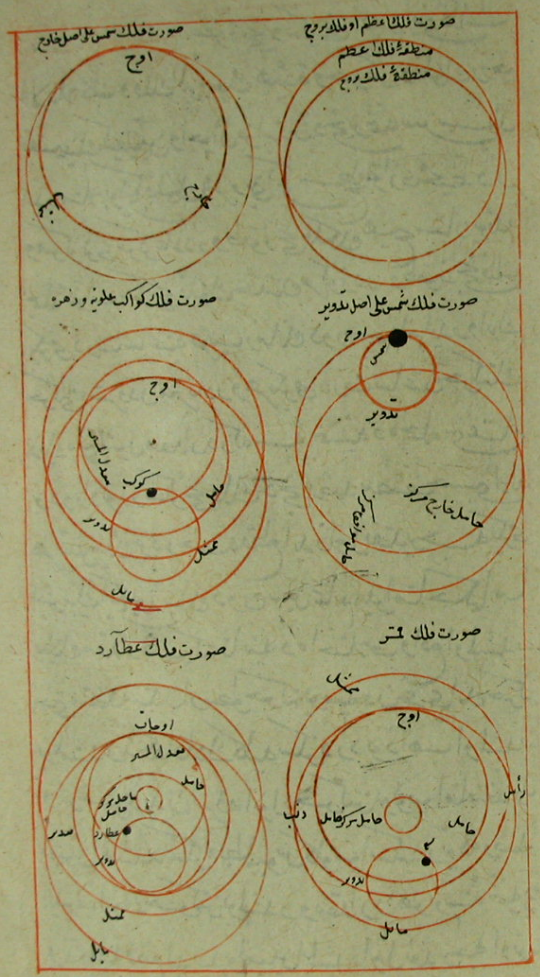 صورت فلك اعظم او فلك بروج
منطقهٔ فلك اعظم
منطقهٔ فلك بروج
صورت فلك شمس على اصل خارج
اوج
خارج
ممثل
صورت فلك شمس على اصل تدوير
اوج
شمس
تدوير
حامل خارج مركز
حامل موافق مركز
صورت فلك كواكب علويه و زهره
اوج
معدل المسير
كوكب
حامل
تدوير
ممثل
مايل
صورت فلك قمر
ممثل
اوج
رأس
ذنب
حامل مركز حامل
حامل
تدوير
مايل
صورت فلك عطآرد
اوجات
معدل المسير
حامل
حامل
عطارد
مدير
تدوير
ممثل
مايل